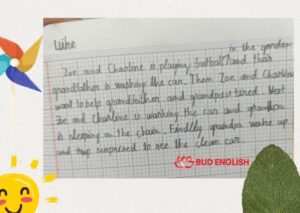 Luke
in the garden
Zoe and Charline is playing football and their
grandfather is warking the car. Them Zoe and Charline
want to help grandfather and grandpa is tired. Next
Zoe and Charline is warking the car and grandpa
is sleeping on the chair. Finally grandpa wake up
and surprised to see the clean car.
BUD ENGLISH